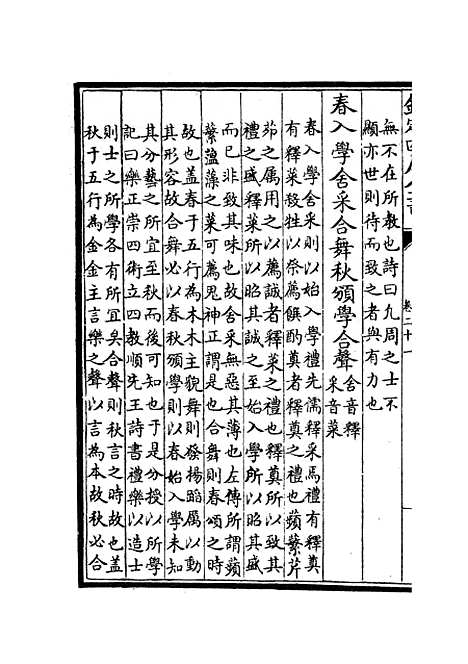 欽定四庫全書
卷二十一
無不在所教也詩曰九周之士不
顯亦世則待而致之者與有力也
春入學舍采合舞秋頒學合聲舍音釋
采音菜
春入學舍采則以始入學禮先儒釋采焉禮有釋奠
有釋菜殺牲以祭薦饌酌奠者釋奠之禮也蘋蘩芹
茆之属用之以薦誠者釋菜之禮也釋奠所以致其
禮之盛釋菜所以昭其誠之至始入學所以昭其誠
而已非致其味也故舍采無惡其薄也左傳所謂蘋
蘩薀藻之菜可薦鬼神正謂是也合舞則春頌之時
故也盖春于五行為木木主貌舞則發揚蹈厲以動
其形容故合舞必以春秋頒學則以春始入學未知
其分藝之所宜至秋而後可知也于是分授以所學
記曰樂正崇四術立四教順先王詩書禮樂以造士
則士之所學各有所宜矣合聲則秋言之時故也盖
秋于五行為金金主言樂之聲以言為本故秋必合